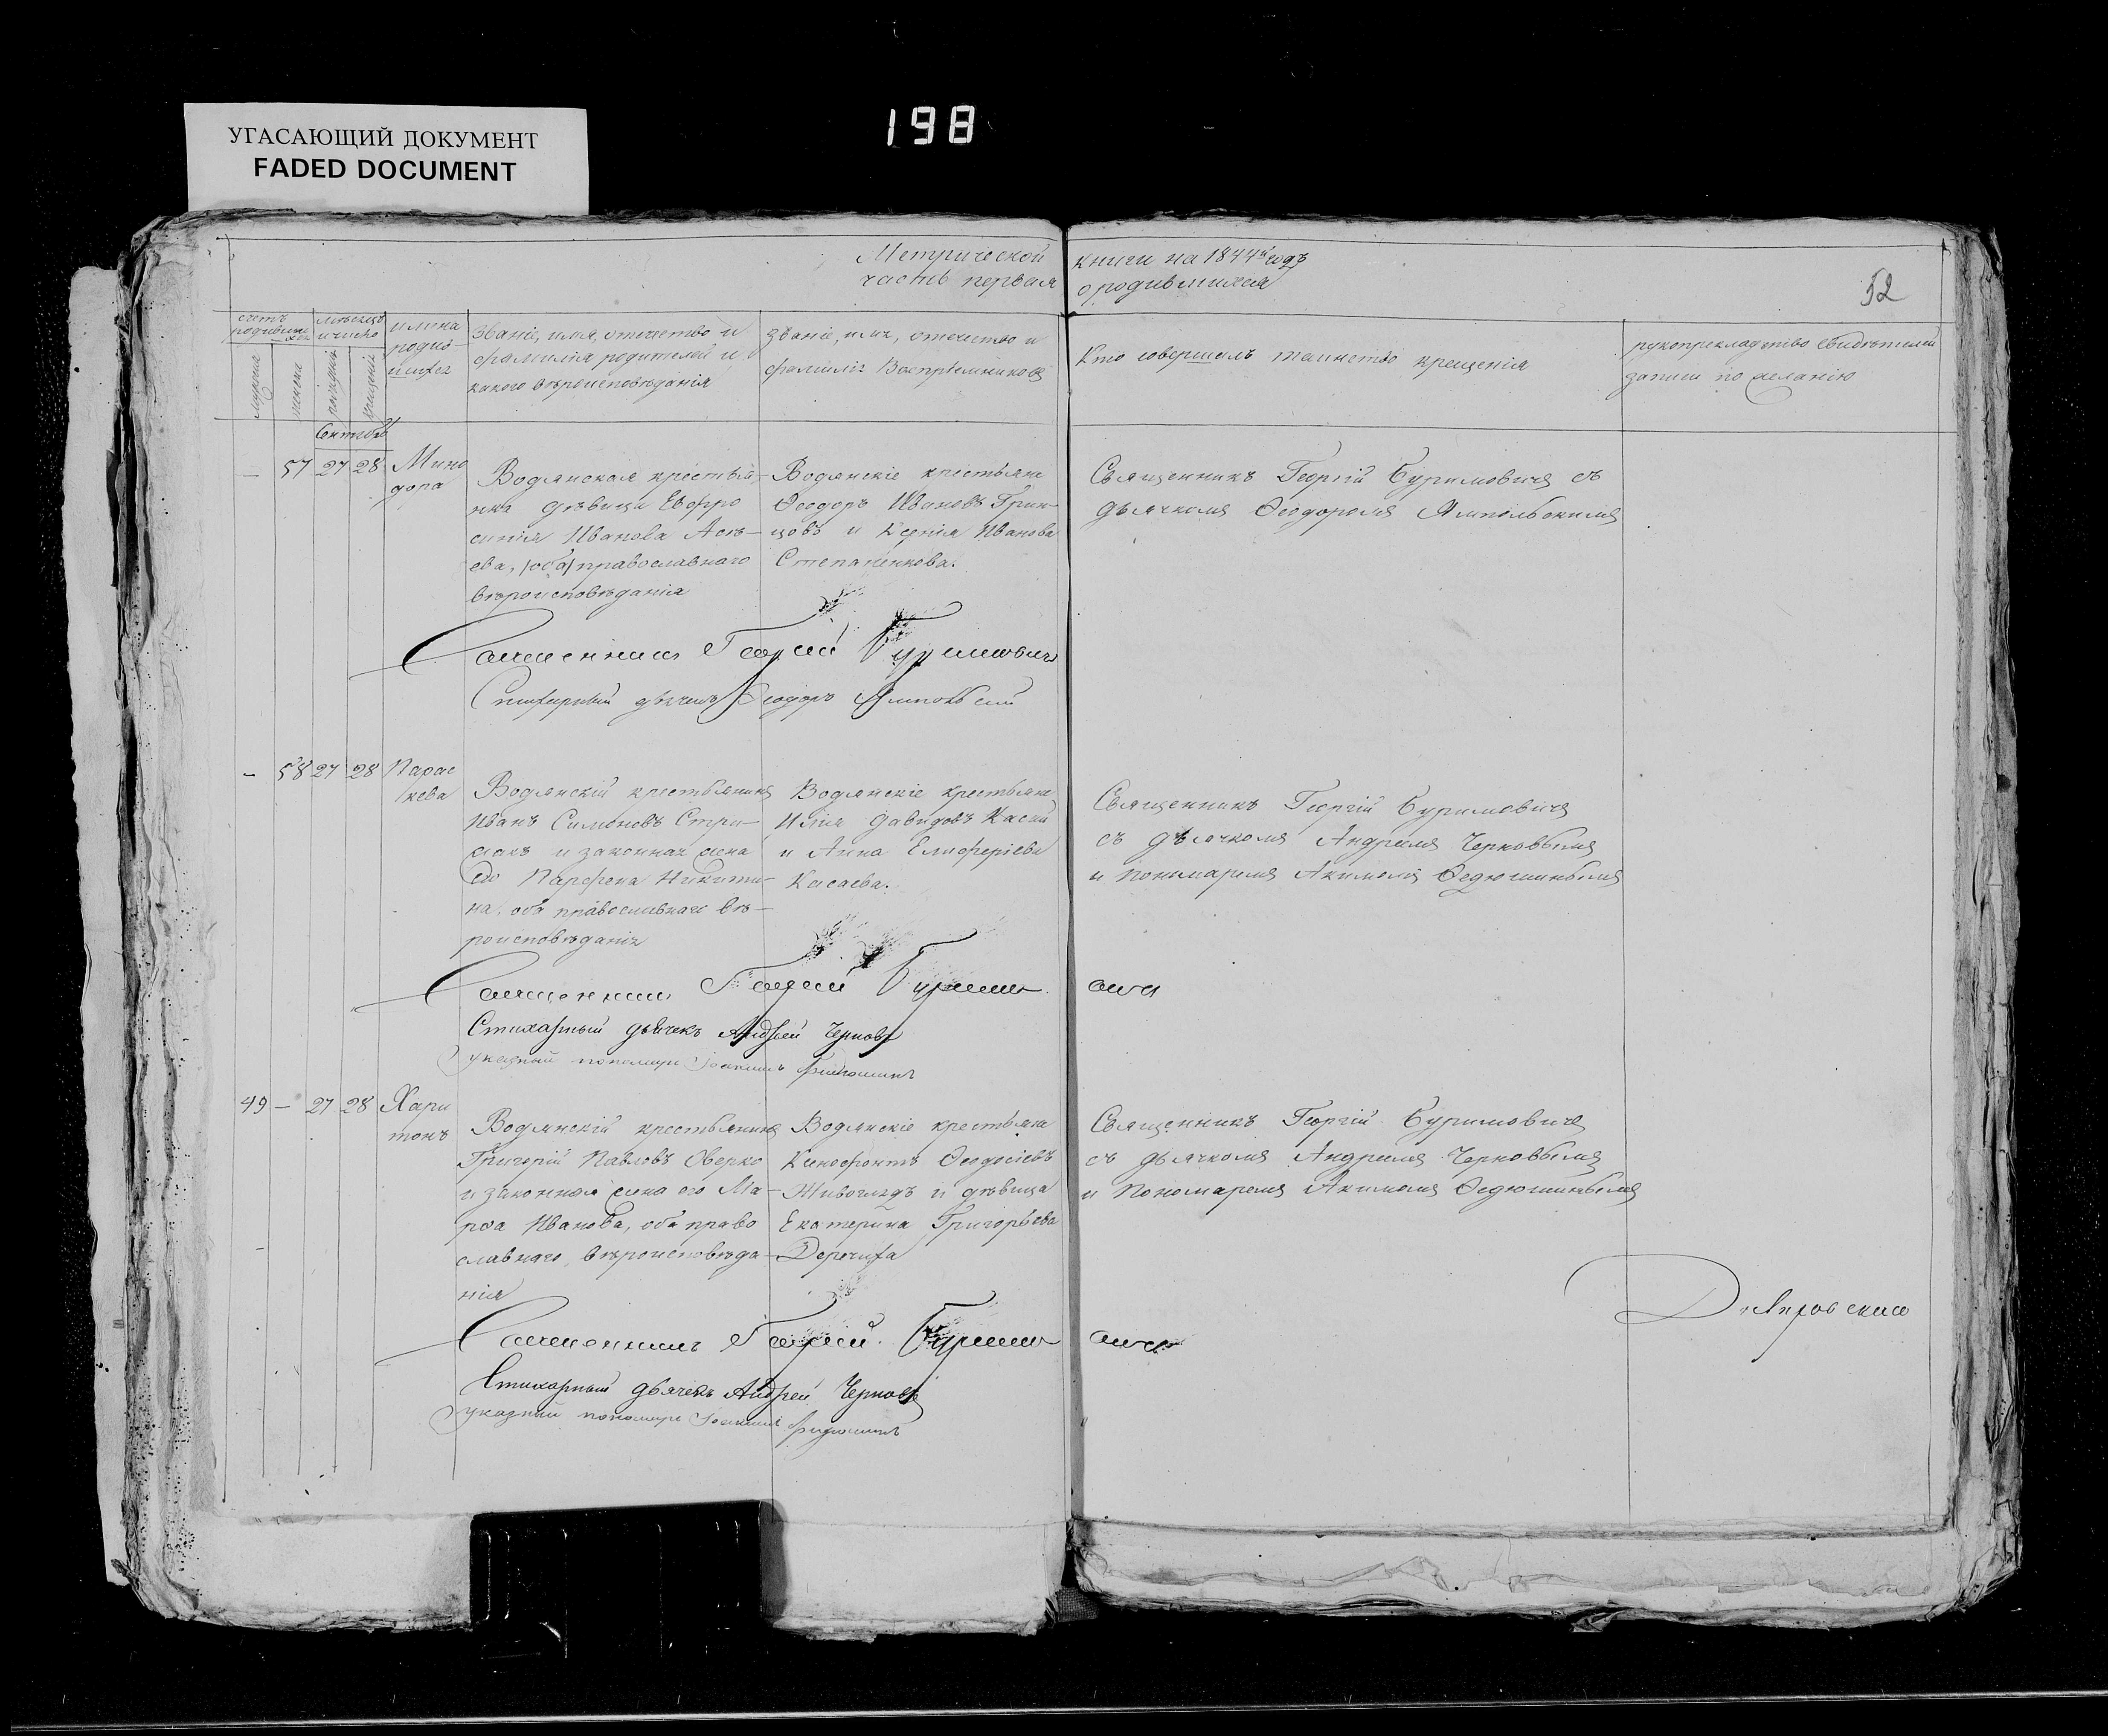 УГАСАЮЩИЙ ДОКУМЕНТ
FADED DOCUMENT
198
Метрической книги на 1844й годъ
часть первая о родившихся
52
счетъ родившихся
мужеска
женска
мѣсяцъ и число
рожденія
крещенія
имена родившихся
Званіе, имя, отечество и
фамилія родителей и
какого вѣроисповѣданія
Званіе, имя, отечество и
фамилія Воспріемниковъ
Кто совершалъ таинство крещенія
рукоприкладство свидѣтелей
записи по желанію
— 57 27 28 Мино
дора
Водянская крестья
нка дѣвица Евфро
синія Иванова
православнаго
вѣроисповѣданія
Водянскіе крестьяне
Ѳеодоръ Ивановъ Грин-
цовъ и Ксенія Иванова
Степаненкова.
Священникъ Георгій Буримовичъ съ
дьячкомъ Ѳеодоромъ Ямпольскимъ
Священникъ Георгій Буримовичъ
Стихарный дьячекъ Ѳеодоръ Ямпольский
— 58 27 28 Парас
кева
Водянскій крестьянинъ
Иванъ Симоновъ
и законная жена
его Никити-
на, оба православнаго вѣ-
роисповѣданія
Водянскіе крестьяне
Илія Давидовъ
и Анна Елиферіева
Касаева.
Священникъ Георгій Буримовичъ
съ дьячкомъ Андреемъ Черновымъ
и Пономаремъ Акимомъ Ѳедюшинымъ
Священникъ Георгій Буримовичъ
Стихарный дьячекъ Андрей Черновъ
указный пономарь Іоакимъ
49 — 27 28 Хари
тонъ
Водянскій крестьянинъ
Григорій Павловъ Оверко
и законная жена его Ма-
рѳа Иванова, оба право
славнаго вѣроисповѣда-
нія
Водянскіе крестьяне
Ксенофонтъ Ѳеодосіевъ
и дѣвица
Екатерина Григорьева
Священникъ Георгій Буримовичъ
съ дьячкомъ Андреемъ Черновымъ
и Пономаремъ Акимомъ Ѳедюшинымъ
Священникъ Георгій Буримовичъ
Стихарный дьячекъ Андрей Черновъ
указный пономарь Іоакимъ